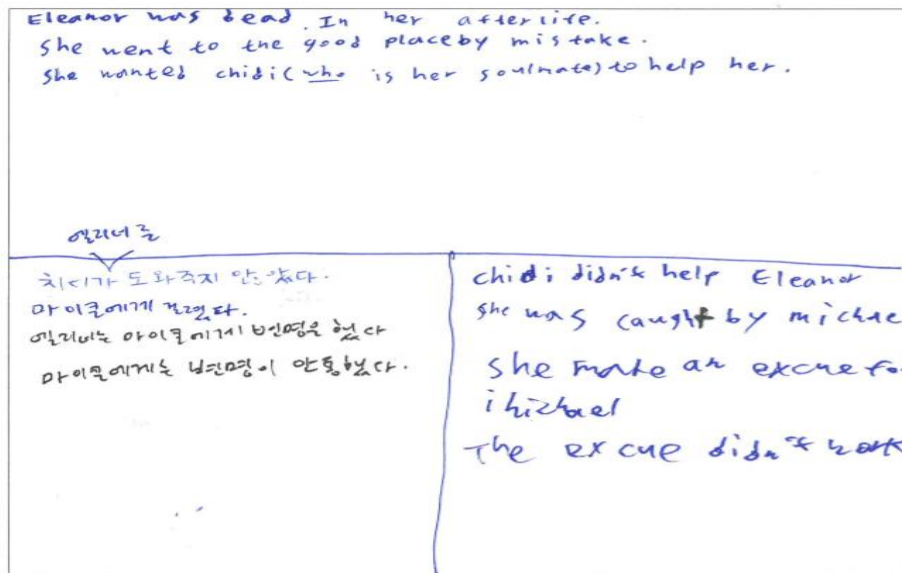 Eleanor was dead. In her afterlife.
she went to the good place by mistake.
she wanted chidi (who is her soulmate) to help her.
엘리너를
치디가 도와주지 안았다.
마이클에게 걸렸다.
엘리너는 마이클에게 변명을 했다
마이클에게는 변명이 안통했다.
chidi didn't help Eleanor
she was caught by michae
she make an excue fo
michael
The excue didn't work